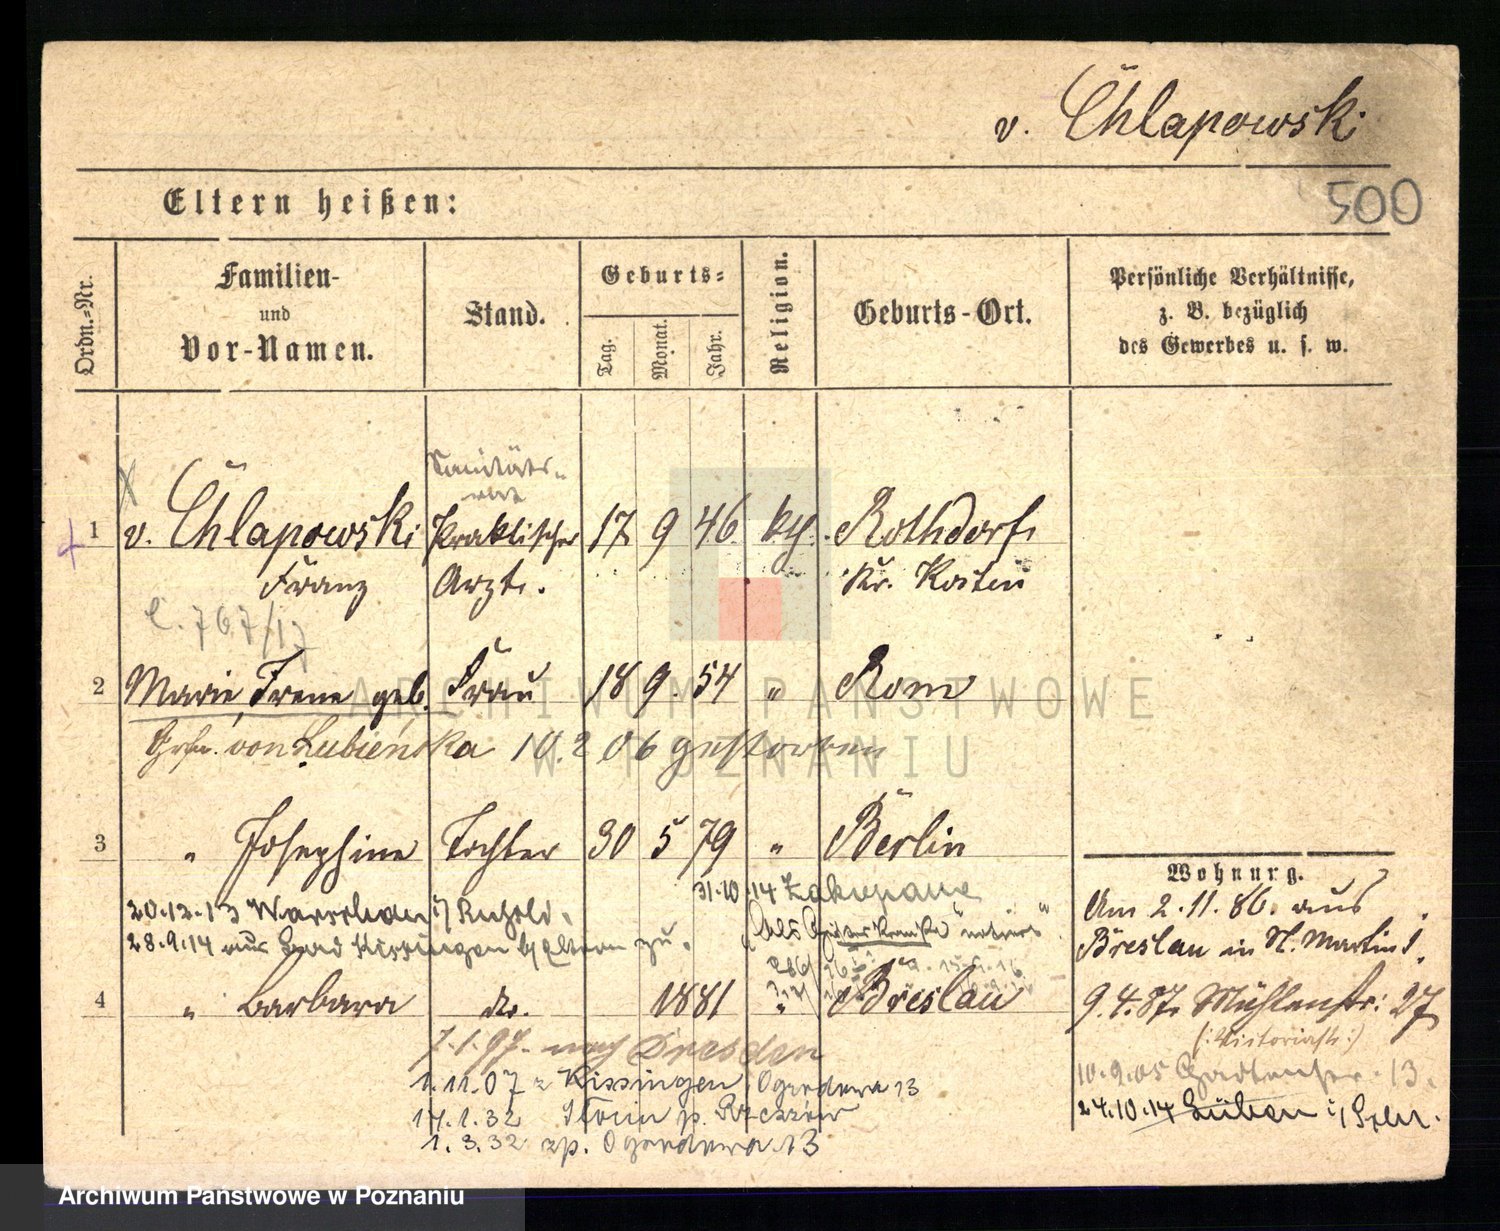 v. Chlapowski
Eltern heißen:
500
Ordn.-Nr.
Familien-
und
Vor-Namen.
Stand.
Geburts-
Tag.
Monat.
Jahr.
Religion.
Geburts-Ort.
Persönliche Verhältnisse,
z. B. bezüglich
des Gewerbes u. s. w.
Sanitäts-
rat
1 v. Chlapowski praktischer 17 9 46 kth. Rothdorf
Franz Arzt. Kr. Kosten
C. 767/17
2 Marie, Irene geb. Frau 18 9. 54 " Rom
von Łubieńska 10.2 06 gestorben
3 " Josephine Tochter 30 5 79 " Berlin
31.10.14 Zakopane
20.12.13 Warschau
28.9.14 aus Bad Kissingen Eltern zu.
4 " Barbara do. 1881 " Breslau
7.1.97. nach Dresden
1.11.07 z Kissingen Ogrodowa 13
14.1.32 Słocin p. Rzeszów
1.3.32 zp. Ogrodowa 13
Wohnung.
Am 2.11.86. aus
Breslau in St. Martin
9.4.87. Mühlenstr: 27
(: Victoriastr :)
10.9.05 Gartenstr. 13.
24.10.14 Lüben
ARCHIWUM PAŃSTWOWE
W POZNANIU
Archiwum Państwowe w Poznaniu